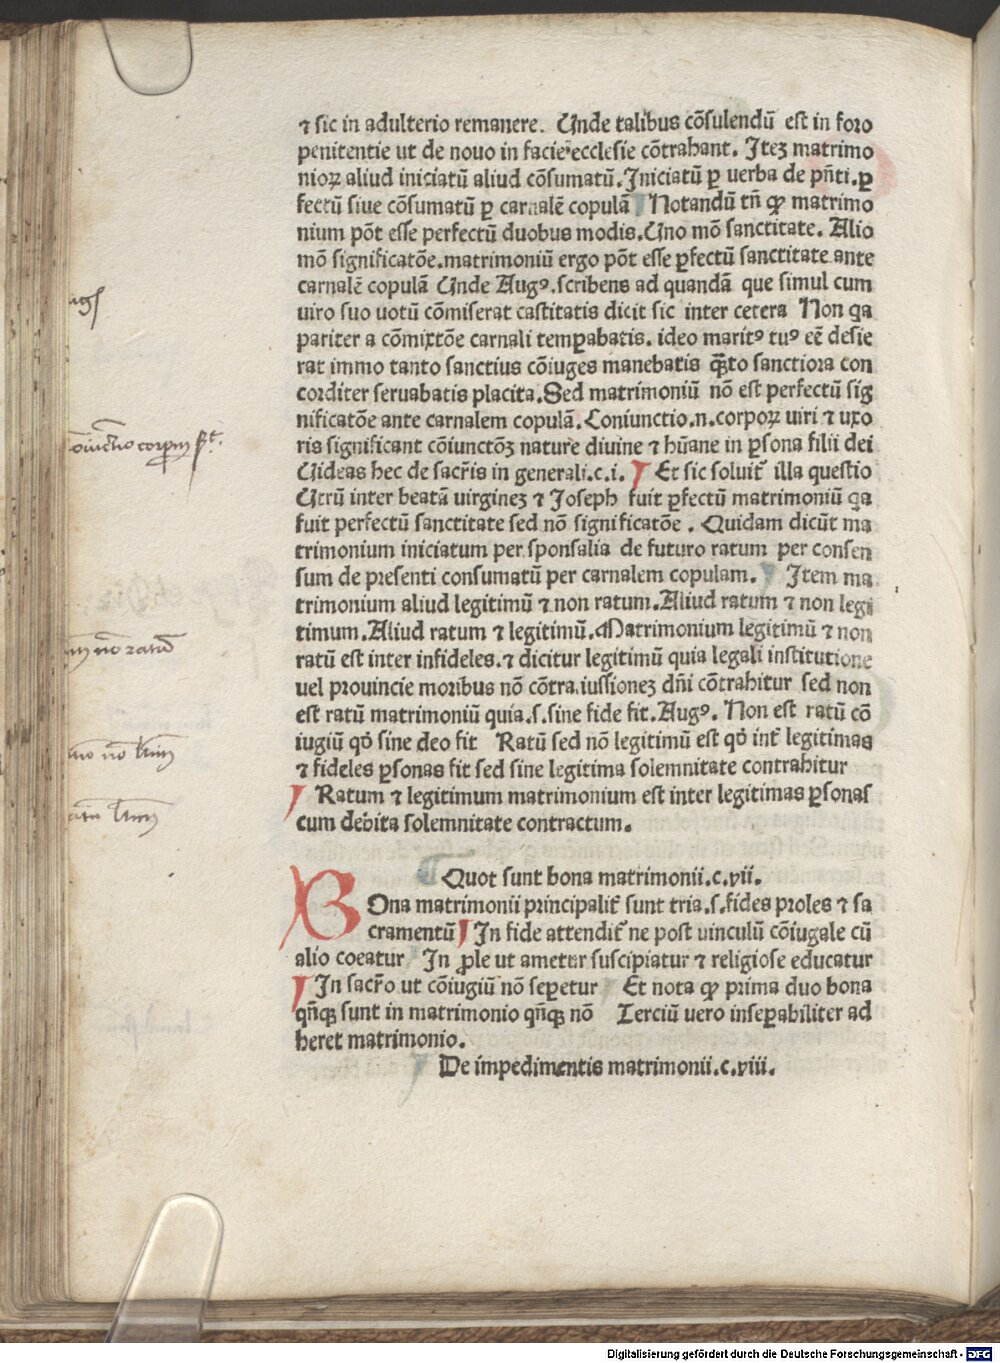 ⁊ sic in adulterio remanere. Unde talibus cõsulendũ est in foro
penitentie ut de nouo in facie ecclesie cõtrahant. Iteʒ matrimo
nioꝝ aliud iniciatũ aliud cõsumatũ. Iniciatũ ꝑ uerba de pñti. ꝑ
fectũ siue cõsumatũ ꝑ carnalẽ copulã Notandũ tñ ꝙ matrimo
nium põt esse perfectũ duobus modis. Uno mõ sanctitate. Alio
mõ significatõe. matrimoniũ ergo põt esse ꝑfectũ sanctitate ante
carnalẽ copulã Unde Augꝰ. scribens ad quandã que simul cum
uiro suo uotũ cõmiserat castitatis dicit sic inter cetera Non qa
pariter a cõmixtõe carnali temꝑabatis. ideo maritꝰ tuꝰ eẽ desie
rat immo tanto sanctius cõiuges manebatis q̃ʒto sanctiora con
corditer seruabatis placita. Sed matrimoniũ nõ est perfectũ sig
nificatõe ante carnalem copulã. Coniunctio .n. corpoꝝ uiri ⁊ uxo
ris significant cõiunctõʒ nature diuine ⁊ hũane in ꝑsona filii dei
Uideas hec de sacr̃is in generali. c. i. Et sic soluit᷑ illa questio
Utrũ inter beatã virgineʒ ⁊ Ioseph fuit ꝑfectũ matrimoniũ qa
fuit perfectũ sanctitate sed nõ significatõe. Quidam dicũt ma
trimonium iniciatum per sponsalia de futuro ratum per consen
sum de presenti consumatũ per carnalem copulam. Item ma
trimonium aliud legitimũ ⁊ non ratum. Aliud ratum ⁊ non legi
timum. Aliud ratum ⁊ legitimũ. Matrimonium legitimũ ⁊ non
ratũ est inter infideles. ⁊ dicitur legitimũ quia legali institutione
uel prouincie moribus nõ cõtra iussioneʒ dñi cõtrahitur sed non
est ratũ matrimoniũ quia .s. sine fide fit. Augꝰ. Non est ratũ cõ
iugiũ qď sine deo fit Ratũ sed nõ legitimũ est qď int᷑ legitimas
⁊ fideles ꝑsonas fit sed sine legitima solemnitate contrahitur
Ratum ⁊ legitimum matrimonium est inter legitimas ꝑsonas
cum debita solemnitate contractum.
Quot sunt bona matrimonii. c. vii.
BOna matrimonii principalit᷑ sunt tria .s. fides proles ⁊ sa
cramentũ In fide attendit᷑ ne post uinculũ cõiugale cũ
alio coeatur In ꝓle ut ametur suscipiatur ⁊ religiose educatur
In sacr̃o ut cõiugiũ nõ seꝑetur Et nota ꝙ prima duo bona
qñqꝫ sunt in matrimonio qñqꝫ nõ Terciũ uero inseꝑabiliter ad
heret matrimonio.
De impedimentis matrimonii. c. viii.
Digitalisierung gefördert durch die Deutsche Forschungsgemeinschaft - DFG